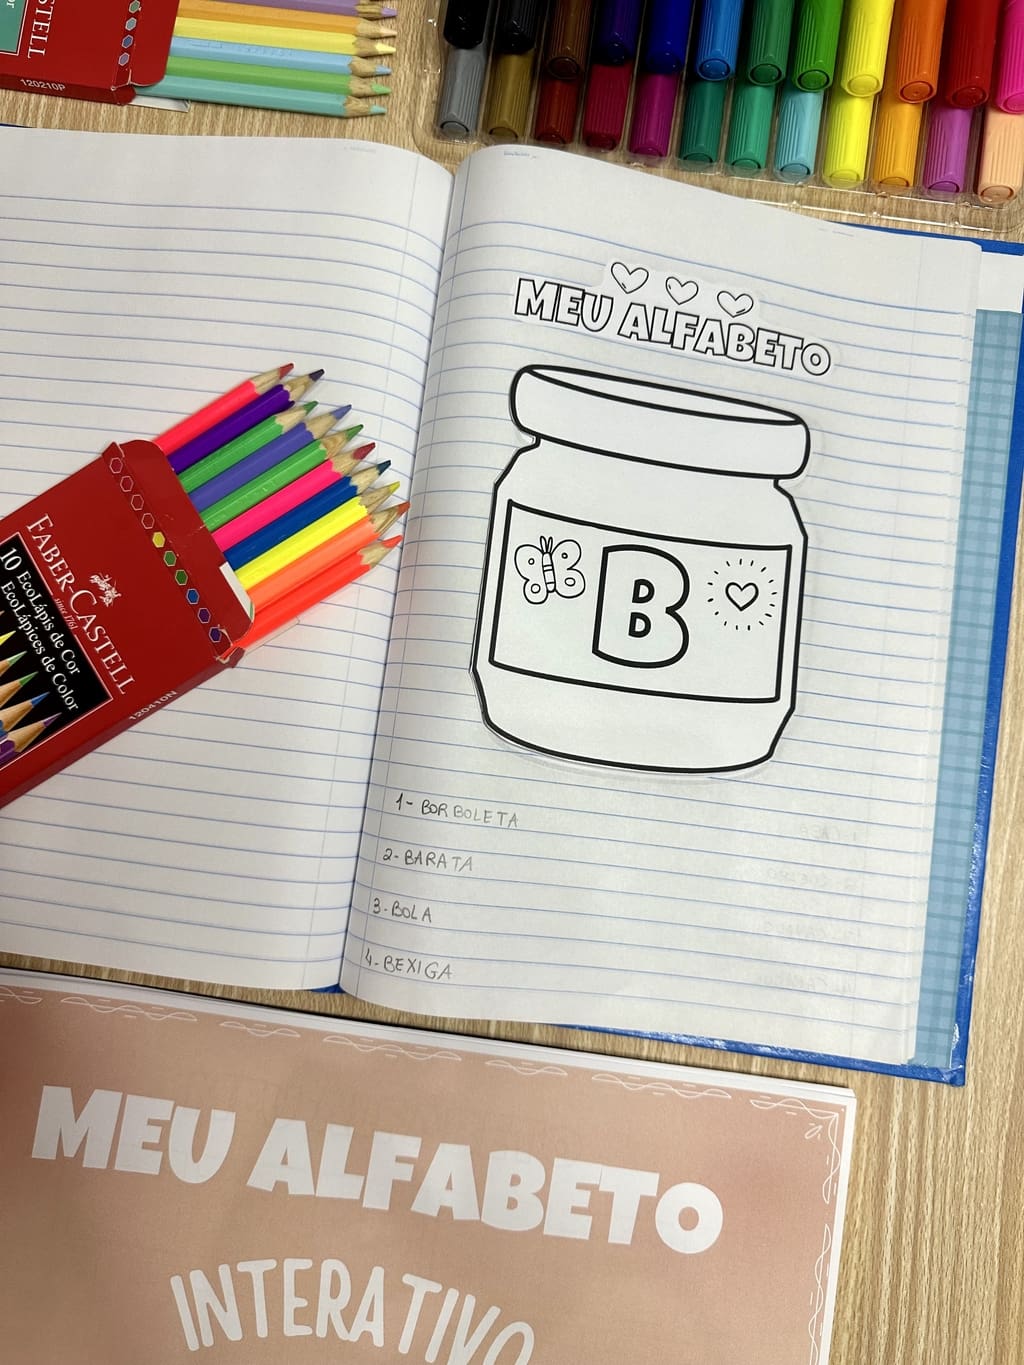 CASTELL
120210P
MEU ALFABETO
B
FABER-CASTELL
since 1761
10 EcoLápis de Cor
EcoLápices de Color
120410N
1- BORBOLETA
2- BARATA
3- BOLA
4- BEXIGA
MEU ALFABETO
INTERATIVO